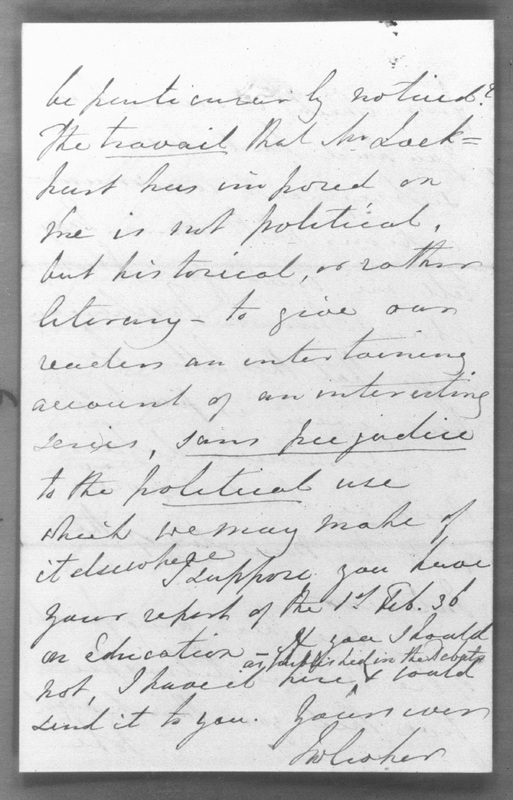 be particularly noticed.
The travail that Mr Lock=
hart has imposed on
me is not political,
but historical, or rather
literary - to give our
readers an intertaining
account of an interesting
series, sans prejudice
to the political use
which we may make of
it elsewhere
I suppose you have
your report of the 1st Feb. 36
on Education - If you should
as published in the Debats
not, I have it here & could
send it to you. Yours ever
JWCroker